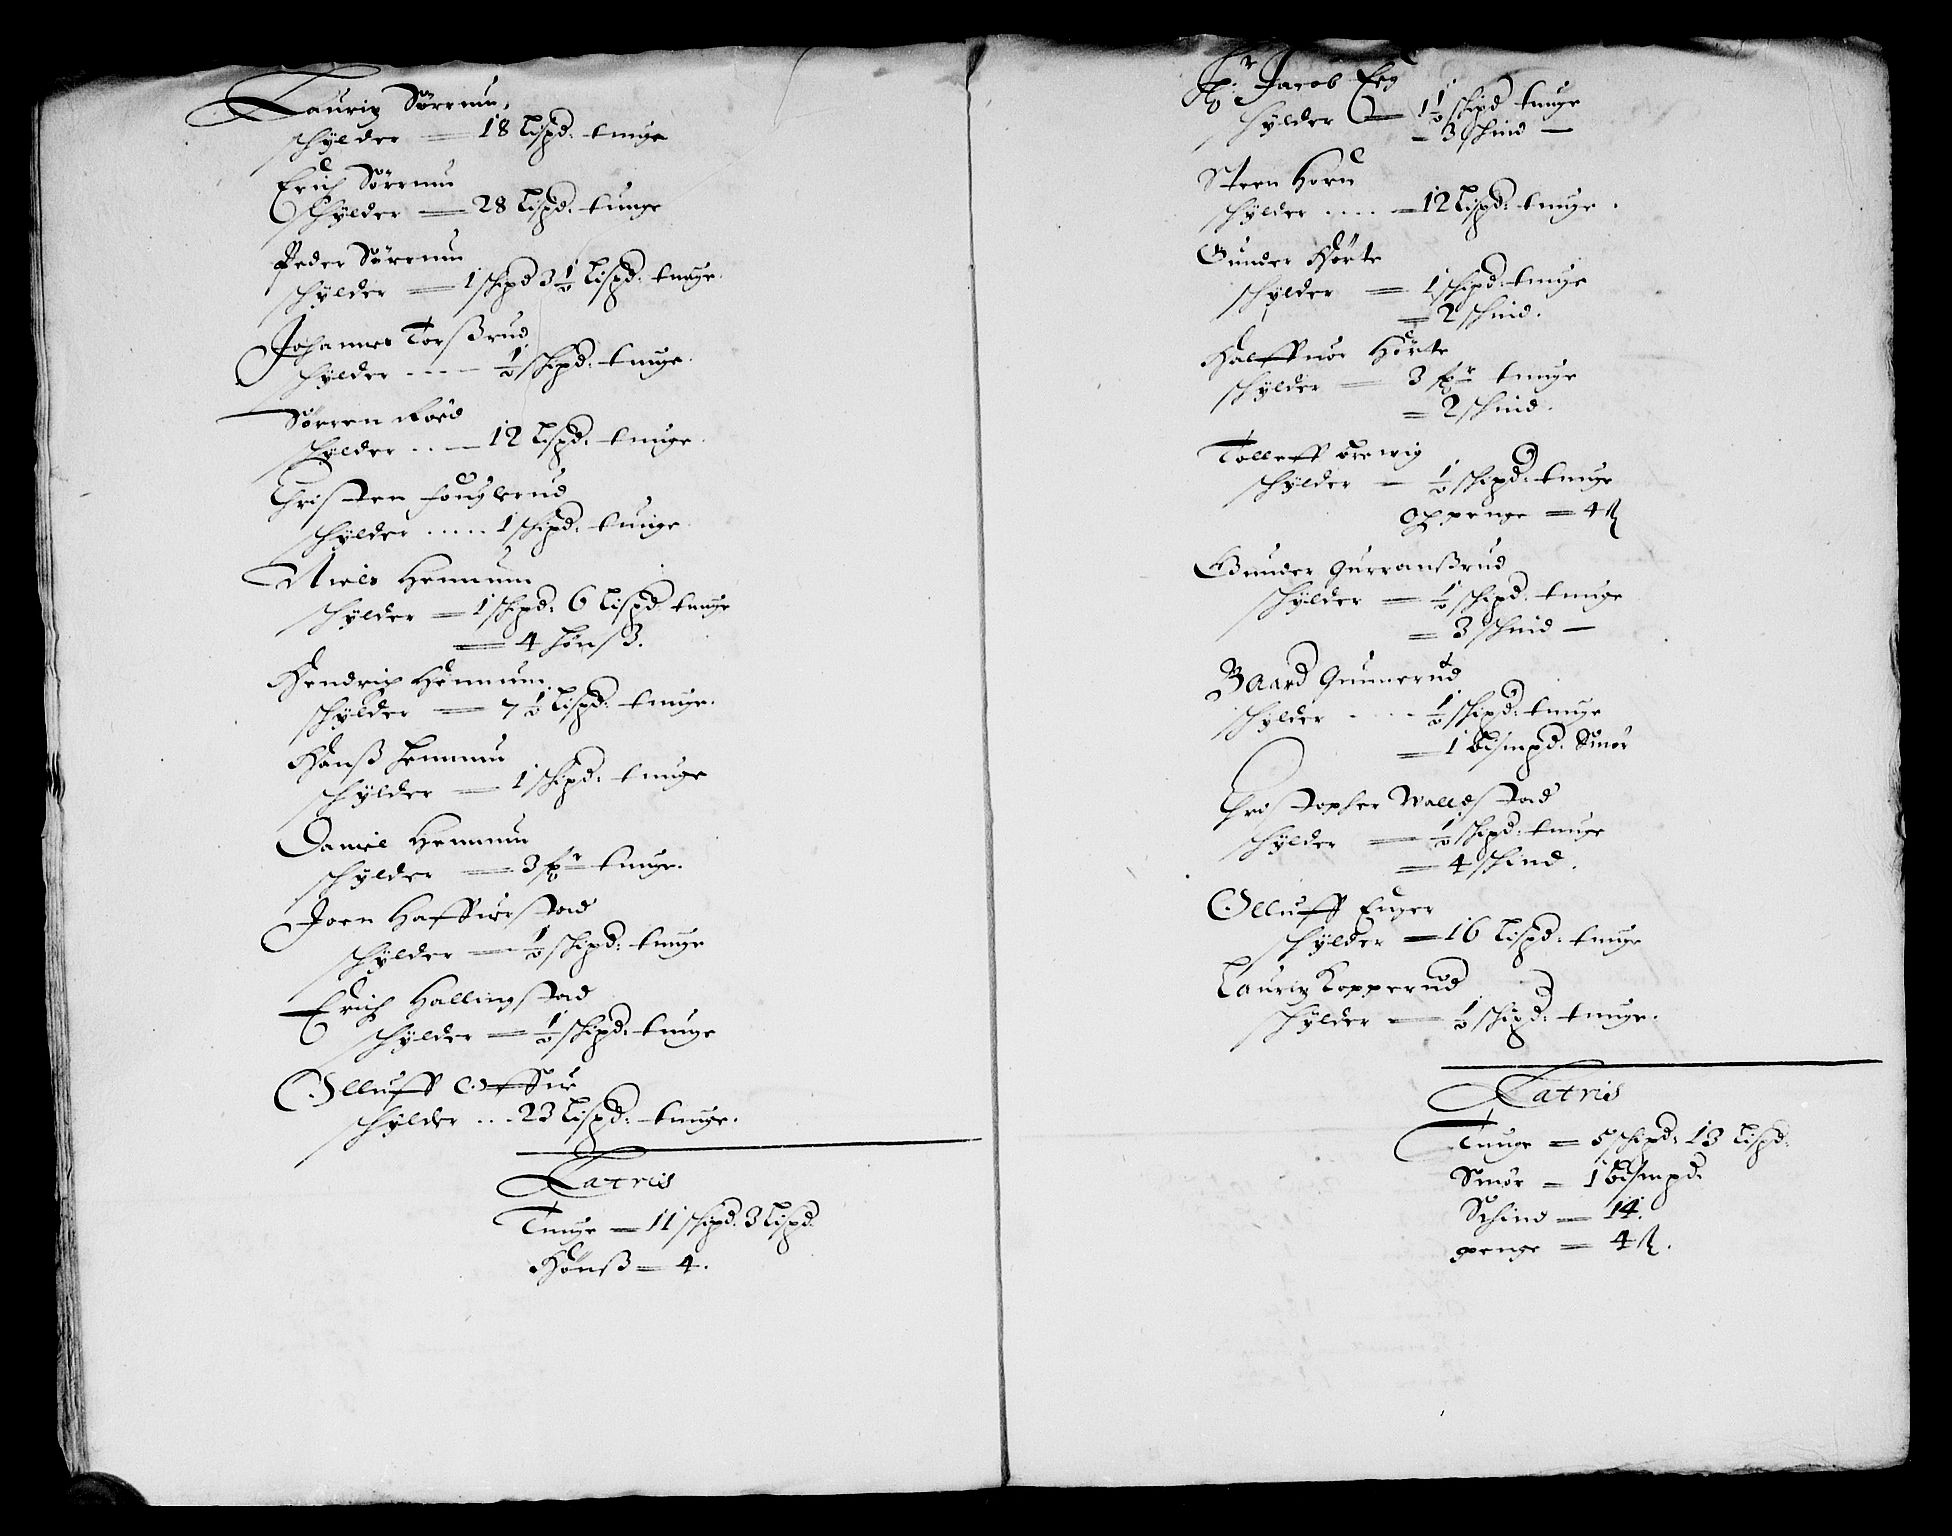 Lauriz Sørrum
schÿlder — 18 lispd: tunge
Erich Sørrum
schÿlder — 28 lispd: tunge
Peder Sørrum
schÿlder — 1 schipd 3½ lispd: tunge
Johannes Torßrud
schÿlder .... ½ schipd: tunge.
Sørren Foed
schÿlder .. — 12 lispd: tunge.
Christen fouglerud
schÿlder ..... 1 schipd: tunge
Niels Hemmum
schÿlder — 1 schipd: 6 lispd tunge
— 4 hønß.
Hendrich Hemmum
schÿlder — 7½ lispd: tunge.
Hanß Hemmum
schÿlder — 1 schipd: tunge
Daniel Hemmum
schÿlder — 3 fr tunge.
Joen Haffuerstad
schÿlder — ½ schipd: tunge
Erich Hallingstad
schÿlder — ½ schipd: tunge
Olluff
schÿlder ... 23 lispd: tunge.
Latris
Tunge — 11 schipd: 3 lispd
Hønß — 4.
Hr Jacob Eeg
schÿlder — 1½ schipd tunge
— 3 schind —
Steen Horn
schÿlder .... — 12 lispd: tunge.
Gunder Hørte
schÿlder — 1 schipd: tunge
— 2 schind.
Halffuor Hørte
schÿlder — 3 fr tunge
— 2 schind.
Tolleff Ørewig
schÿlder — ½ schipd: tunge
Och penge — 4 ß
Gunder Gurranßrud
schÿlder — ½ schipd: tunge
— 3 schind —
Baard Gunnerud
schÿlder .... ½ schipd: tunge
— 1 bismpd: Smør
Christopher Wallestad
schÿlder — ½ schipd: tunge
— 4 schind.
Olluff Enger
schÿlder — 16 lispd: tunge
Lauriz Kopperud
schÿlder — ½ schipd: tunge.
Latris
Tunge — 5 schipd: 13 lispd:
Smør — 1 bismpd:
Schind — 14.
penge — 4 ß.